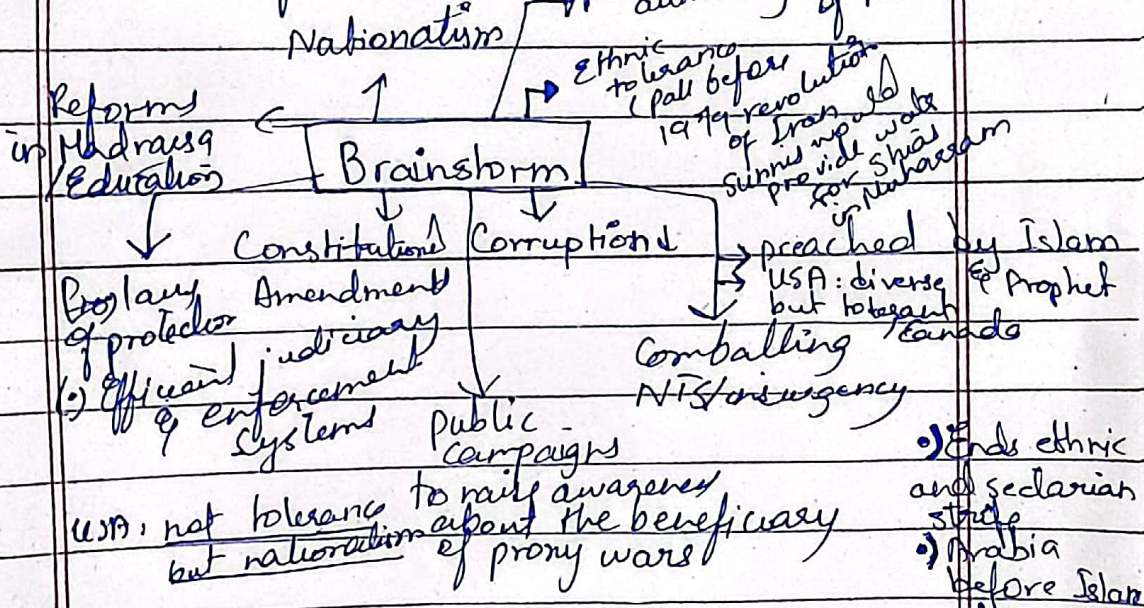 Nationalism
Ethnic
tolerance
(Pak before
1979 revolution
of Iran
sunnis would
provide water
for Shias
in Muharram
Reforms
in Madrassa
/Education
Brainstorm
Constitutional
Amendment
Corruption↓
preached by Islam
& Prophet
USA: diverse
but tolerant
/Canada
laws
of protection
(•) Efficient judiciary
& enforcement
systems
Combatting
NTS/insurgency
Public
campaigns
to raise awareness
about the beneficiary
of proxy wars
USA: not tolerance
but nationalism
•) Ends ethnic
and sectarian
strife
•) Arabia
before Islam